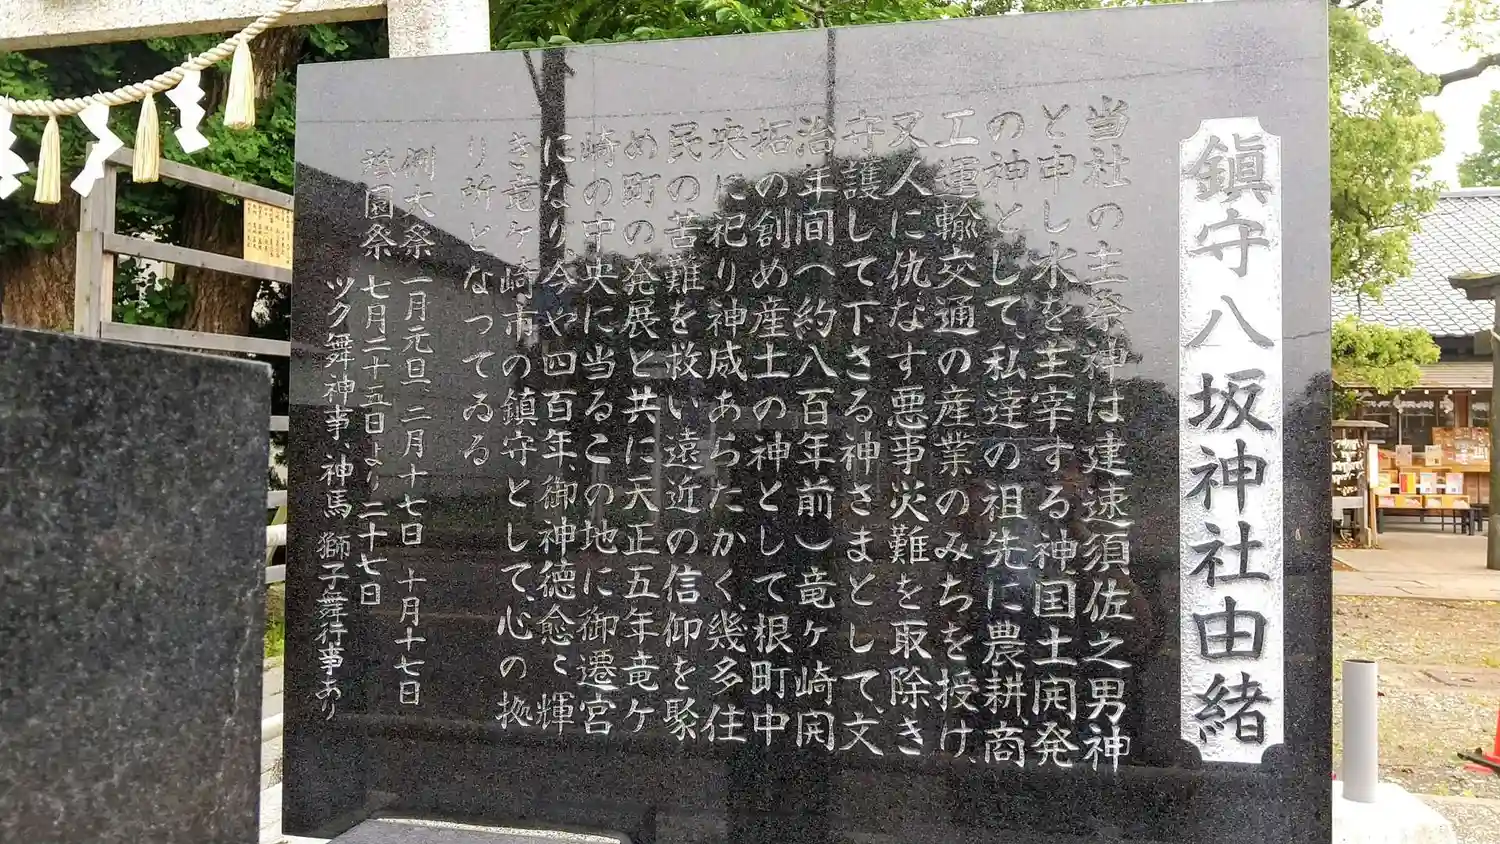 鎮守八坂神社由緒
当社の主祭神は建速須佐之男神
と申し水を主宰する神国土開発
の神として、私達の祖先に農耕、商
工運輸交通の産業のみちを授け、
又人に仇なす悪事災難を取除き
守護して下さる神さまとして、文
治年間へ約八百年前)竜ヶ崎開
拓の創め産土の神として根町中
央に祀り神威あらたかく、幾多住
民の苦難を救い遠近の信仰を聚
め町の発展と共に天正五年竜ヶ
崎の中央に当るこの地に御遷宮
になり、今や四百年、御神徳愈〻輝
き竜ヶ崎市の鎮守として、心の拠
り所となつてゐる
例大祭 一月元旦、二月十七日 十月十七日
祇園祭 七月二十五日より二十七日
ツク舞神事、神馬 獅子舞行事あり